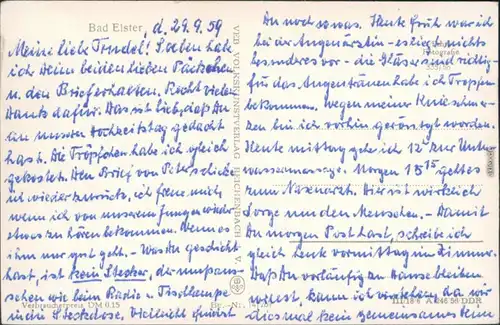 Bad Elster, d. 29.9.59
Meine liebe Trudel! Soeben habe
ich Deine beiden lieben Päckchen
u. den Brief erhalten. Recht vielen
Dank dafür. Das ist lieb, daß Du
an unseren Hochzeitstag gedacht
hast. Die Tröpfchen habe ich gleich
gekostet. Den Brief von Peter schicke
ich wieder zurück, ich freue mich
wenn ich von unserem Jungen wieder
etwas zu hören bekomme. Wenn es
ihm nur gut geht. – Was Du geschickt
hast, ist kein Stecker, der muß aus-
sehen wie beim Radio u. Tischlampe
in Steckdose, Vielleicht findest
Du noch sowas. Heute früh war ich
bei der Augenärztin – es liegt nichts
besonderes vor – die Gläser sind richtig –
für das Augentränen habe ich Tropfen
bekommen. Wegen meiner Knieschmer-
zen bin ich vorhin geröntgt worden.
Heute mittag gehe ich 12 zur Unter-
wassermassage. Morgen 15 15 geht es
zum Nasenarzt. Hier ist wirklich
Sorge um den Menschen. – Damit
Du morgen Post hast, schreibe ich
gleich heute vormittag im Zimmer.
Daß Du vorläufig zu Hause bleiben
willst, kann ich verstehen, da
wird es kein gemeinsames
VEB VOLKSKUNSTVERLAG REICHENBACH i. V.
Fotografie
Verbraucherpreis DM 0,15
Best.-Nr.
III/18/6 A 246 56 DDR